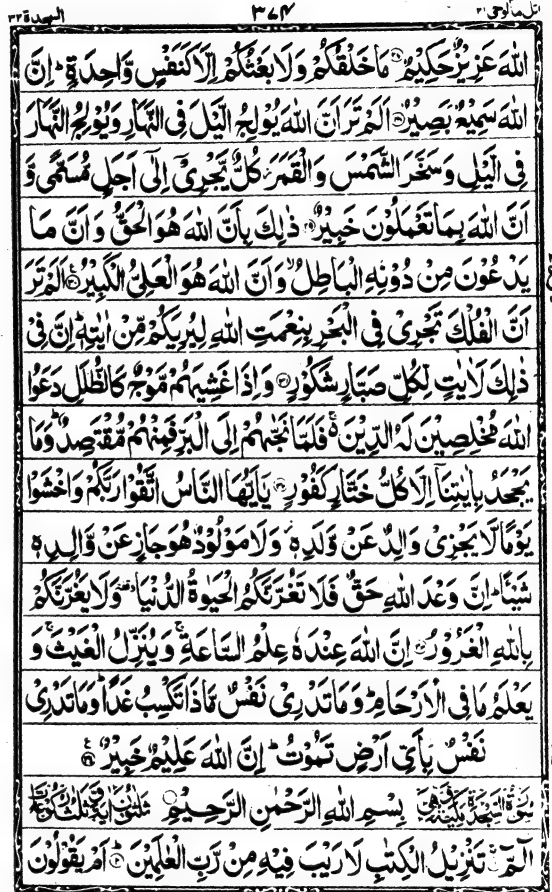 اتل ما اوحی ۲۱ ۳۷۴ السجدة ۳۲
اللّٰهَ عَزِيْزٌ حَكِيْمٌ ۝۲۷ مَا خَلْقُكُمْ وَلَا بَعْثُكُمْ اِلَّا كَنَفْسٍ وَّاحِدَةٍ ؕ اِنَّ
اللّٰهَ سَمِيْعٌۢ بَصِيْرٌ ۝۲۸ اَلَمْ تَرَ اَنَّ اللّٰهَ يُوْلِجُ الَّيْلَ فِي النَّهَارِ وَيُوْلِجُ النَّهَارَ
فِي الَّيْلِ وَسَخَّرَ الشَّمْسَ وَالْقَمَرَ ز كُلٌّ يَّجْرِيْٓ اِلٰٓى اَجَلٍ مُّسَمًّى وَّ
اَنَّ اللّٰهَ بِمَا تَعْمَلُوْنَ خَبِيْرٌ ۝۲۹ ذٰلِكَ بِاَنَّ اللّٰهَ هُوَ الْحَقُّ وَاَنَّ مَا
يَدْعُوْنَ مِنْ دُوْنِهِ الْبَاطِلُ ۙ وَاَنَّ اللّٰهَ هُوَ الْعَلِيُّ الْكَبِيْرُ ۝۳۰ اَلَمْ تَرَ
اَنَّ الْفُلْكَ تَجْرِيْ فِي الْبَحْرِ بِنِعْمَتِ اللّٰهِ لِيُرِيَكُمْ مِّنْ اٰيٰتِهٖ ؕ اِنَّ فِيْ
ذٰلِكَ لَاٰيٰتٍ لِّكُلِّ صَبَّارٍ شَكُوْرٍ ۝۳۱ وَاِذَا غَشِيَهُمْ مَّوْجٌ كَالظُّلَلِ دَعَوُا
اللّٰهَ مُخْلِصِيْنَ لَهُ الدِّيْنَ ۚ فَلَمَّا نَجّٰىهُمْ اِلَى الْبَرِّ فَمِنْهُمْ مُّقْتَصِدٌ ؕ وَمَا
يَجْحَدُ بِاٰيٰتِنَآ اِلَّا كُلُّ خَتَّارٍ كَفُوْرٍ ۝۳۲ يٰٓاَيُّهَا النَّاسُ اتَّقُوْا رَبَّكُمْ وَاخْشَوْا
يَوْمًا لَّا يَجْزِيْ وَالِدٌ عَنْ وَّلَدِهٖ ز وَلَا مَوْلُوْدٌ هُوَ جَازٍ عَنْ وَّالِدِهٖ
شَيْـًٔا ؕ اِنَّ وَعْدَ اللّٰهِ حَقٌّ فَلَا تَغُرَّنَّكُمُ الْحَيٰوةُ الدُّنْيَا ۥ وَلَا يَغُرَّنَّكُمْ
بِاللّٰهِ الْغَرُوْرُ ۝۳۳ اِنَّ اللّٰهَ عِنْدَهٗ عِلْمُ السَّاعَةِ ۚ وَيُنَزِّلُ الْغَيْثَ ۚ وَ
يَعْلَمُ مَا فِي الْاَرْحَامِ ؕ وَمَا تَدْرِيْ نَفْسٌ مَّاذَا تَكْسِبُ غَدًا ؕ وَمَا تَدْرِيْ
نَفْسٌۢ بِاَيِّ اَرْضٍ تَمُوْتُ ؕ اِنَّ اللّٰهَ عَلِيْمٌ خَبِيْرٌ ۝۳۴
سُوْرَةُ السَّجْدَةِ مَكِّيَّةٌ وَّهِيَ بِسْمِ اللّٰهِ الرَّحْمٰنِ الرَّحِيْمِ ثَلٰثُوْنَ اٰيَةً وَّثَلٰثُ رُكُوْعَاتٍ
الٓمّٓ ۝۱ تَنْزِيْلُ الْكِتٰبِ لَا رَيْبَ فِيْهِ مِنْ رَّبِّ الْعٰلَمِيْنَ ۝۲ اَمْ يَقُوْلُوْنَ